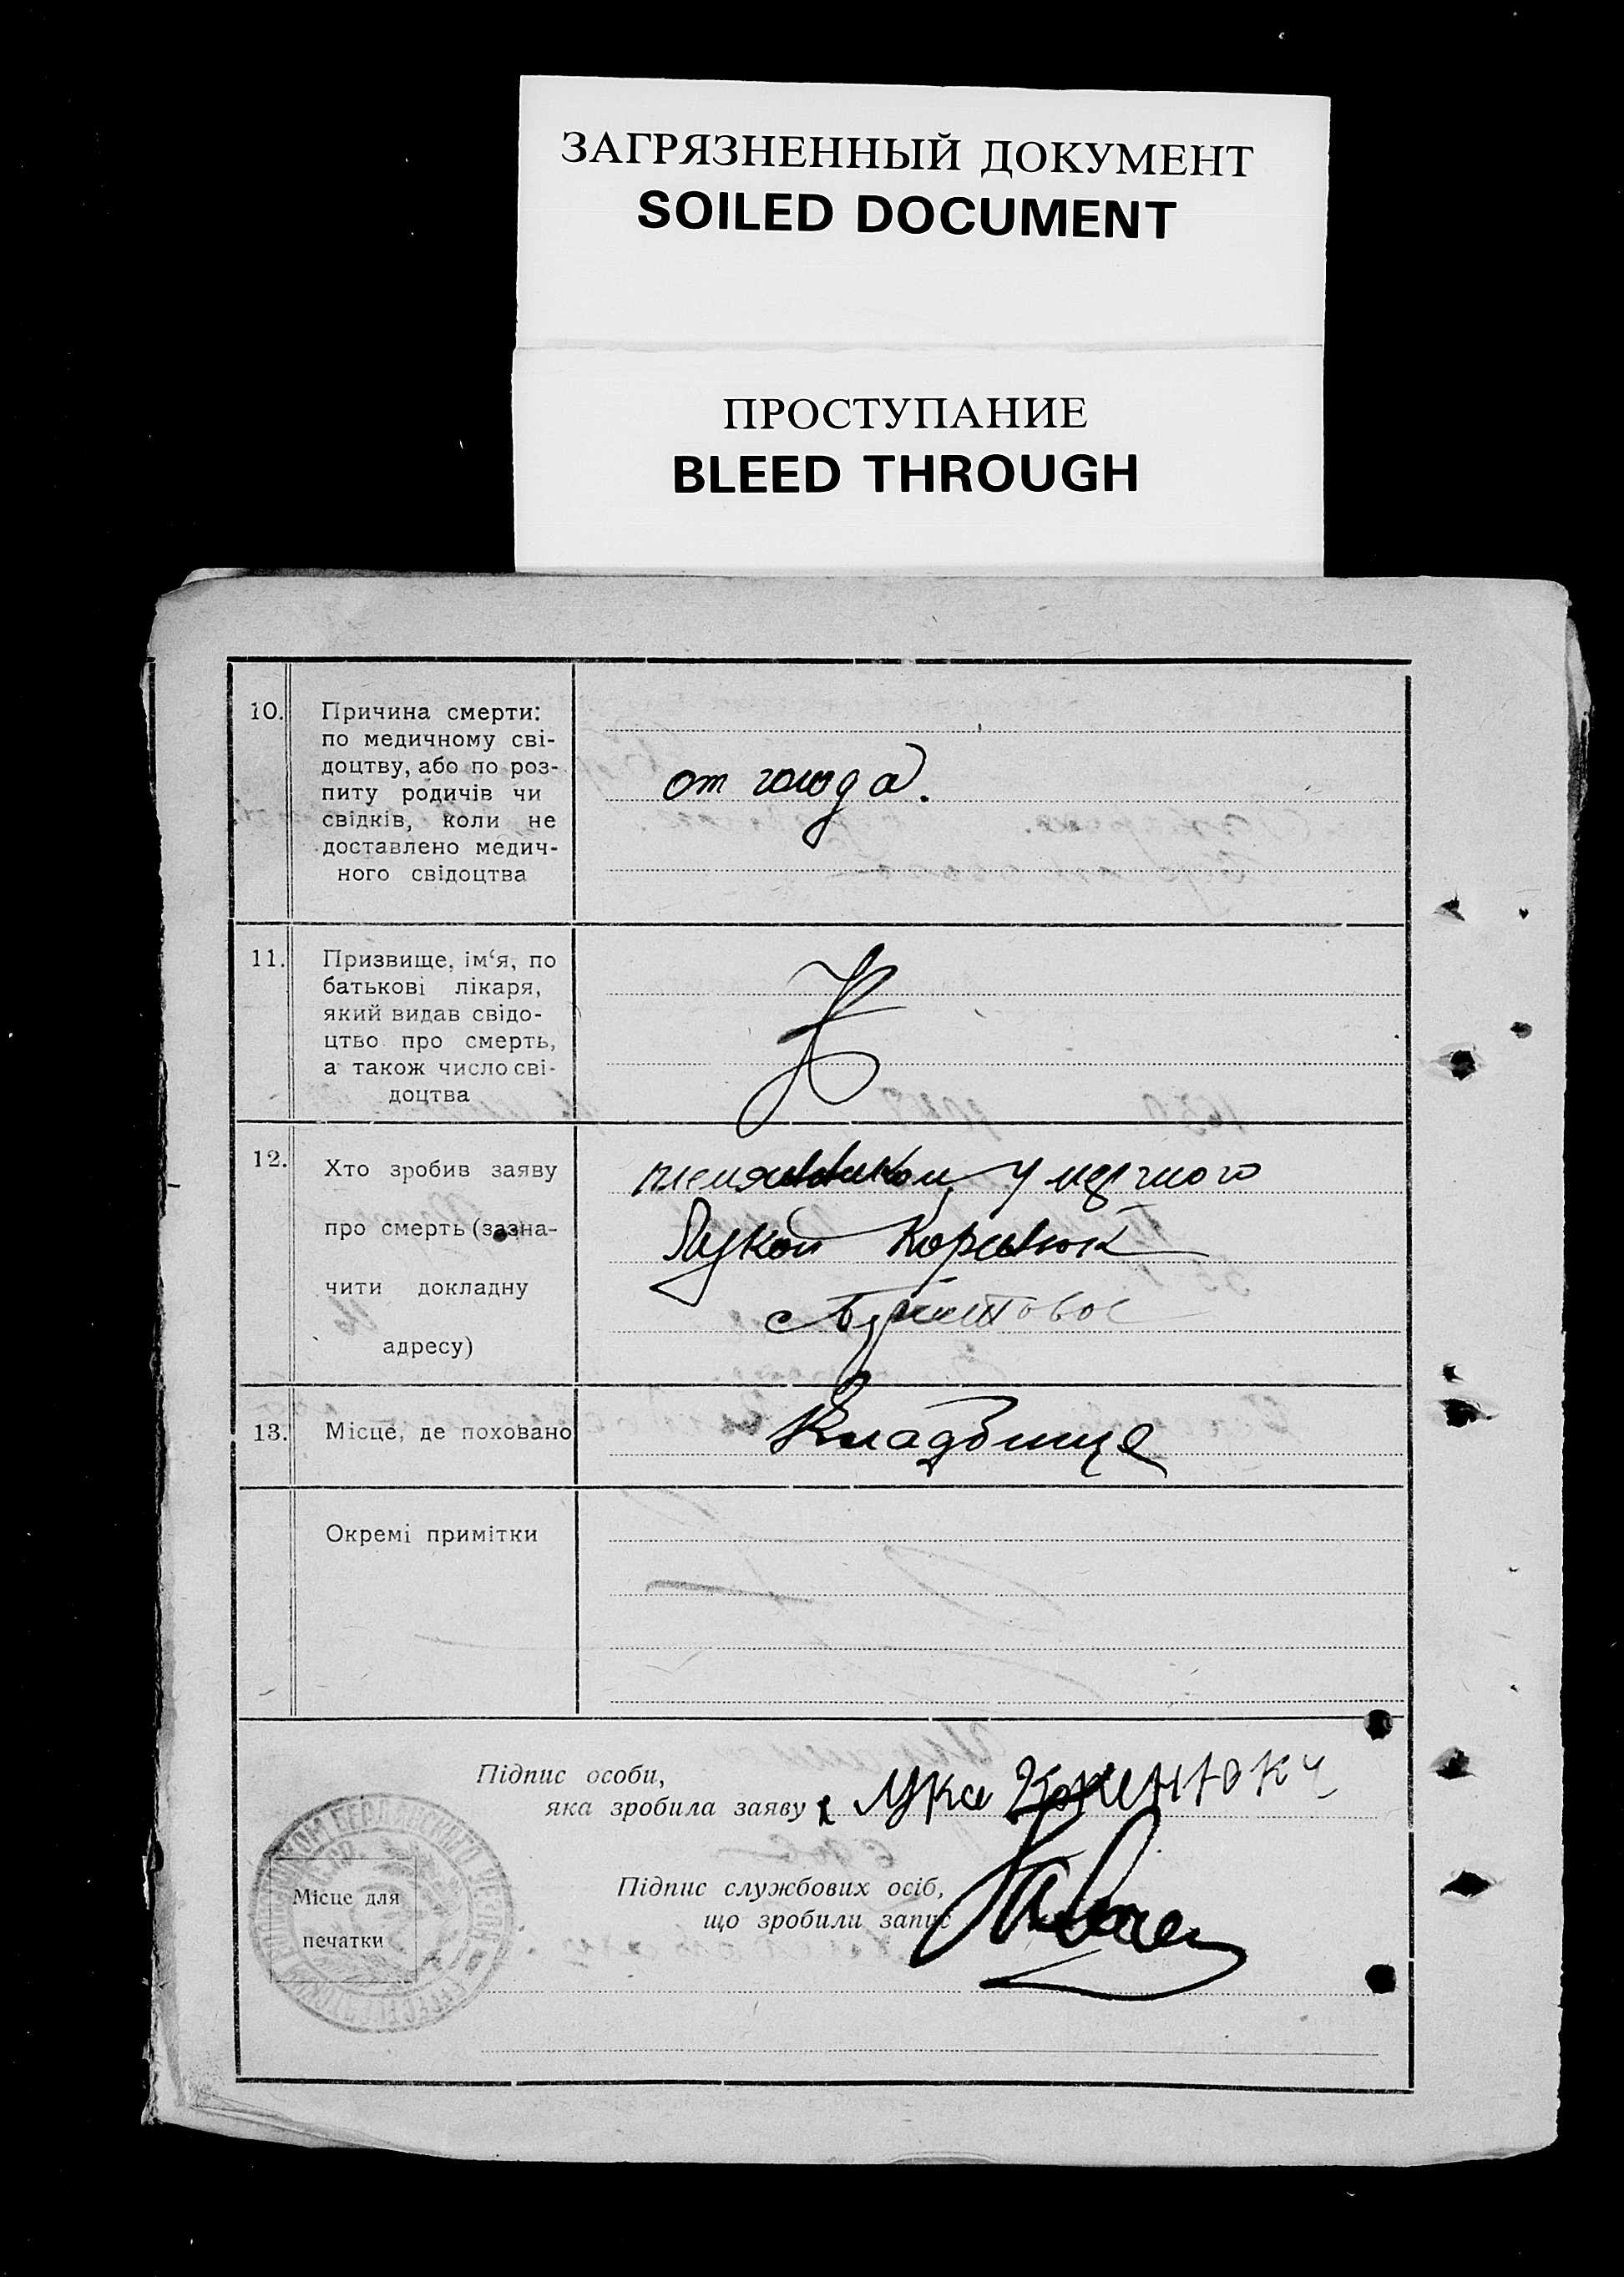 ЗАГРЯЗНЕННЫЙ ДОКУМЕНТ
SOILED DOCUMENT
ПРОСТУПАНИЕ
BLEED THROUGH
10.
Причина смерти:
по медичному сві-
доцтву, або по роз-
питу родичів чи
свідків, коли не
доставлено медич-
ного свідоцтва
от голода.
11.
Призвище, ім‘я, по
батькові лікаря,
який видав свідо-
цтво про смерть,
а також число сві-
доцтва
12.
Хто зробив заяву
про смерть (зазна-
чити докладну
адресу)
племянником умерчого
Лукой
13.
Місце, де поховано
Кладбище
Окремі примітки
Підпис особи,
яка зробила заяву
Лука
Підпис службових осіб,
що зробили запис
Місце для
печатки